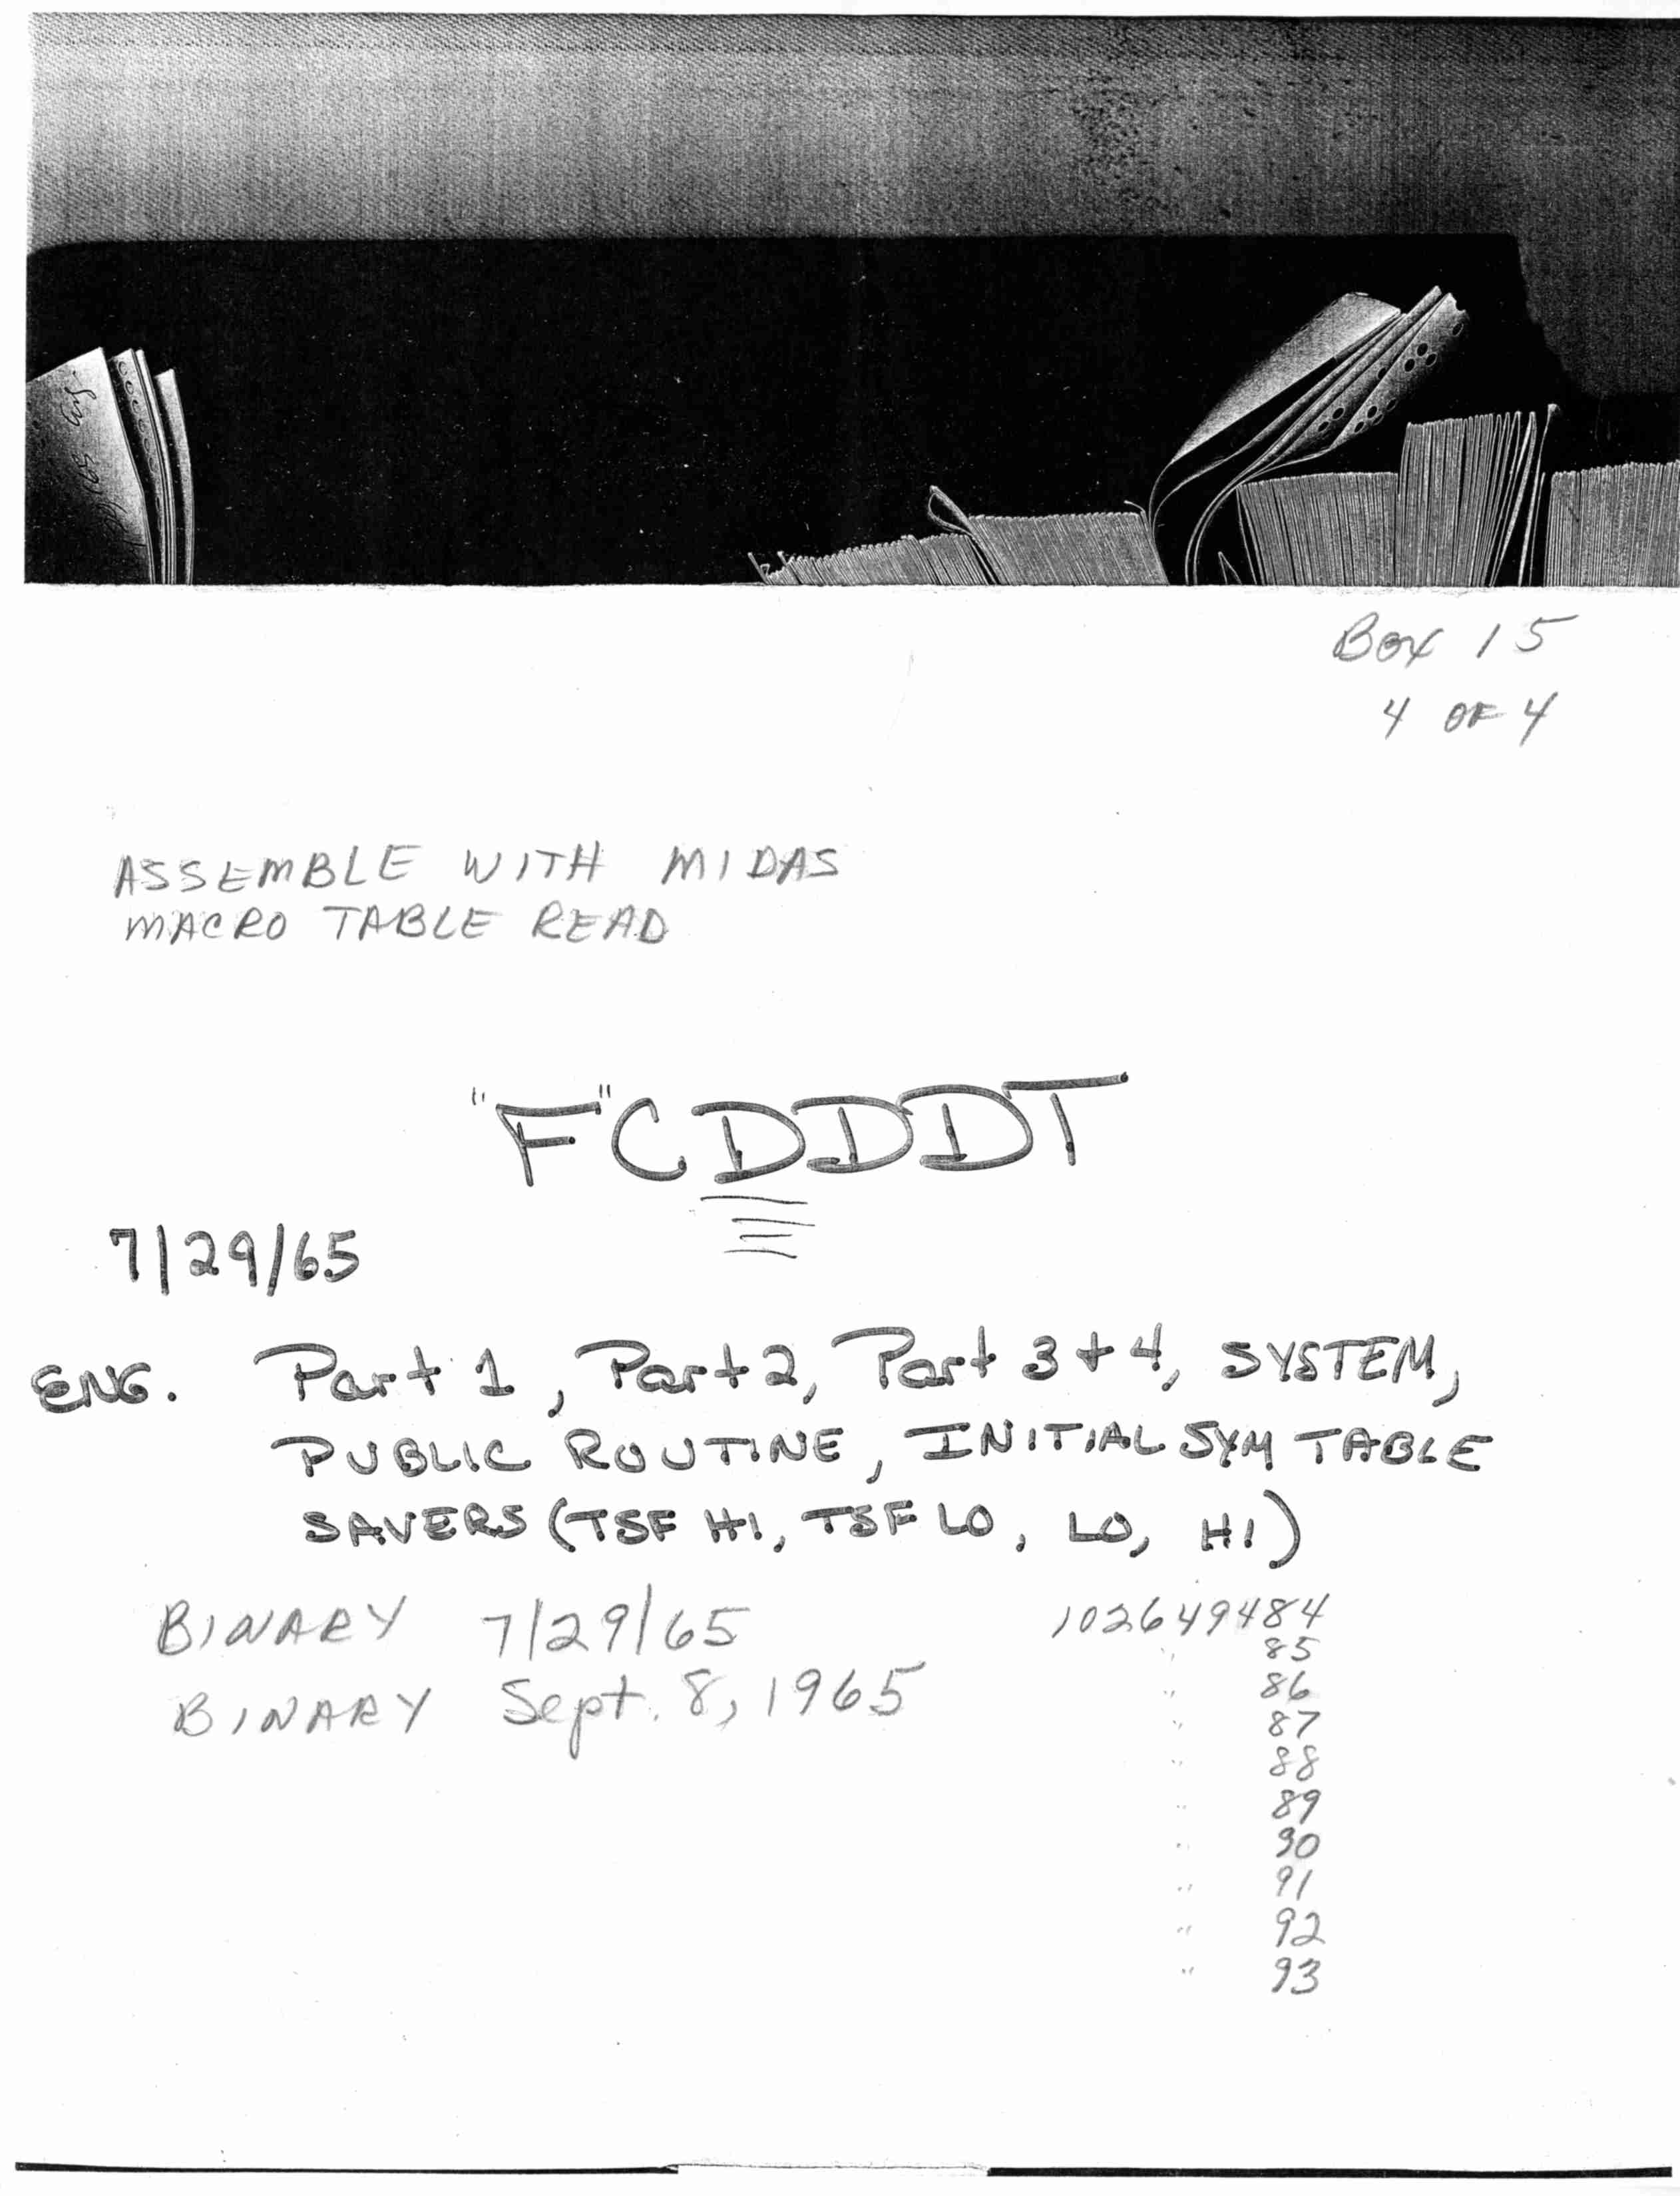 Box 15
4 OF 4
ASSEMBLE WITH MIDAS
MACRO TABLE READ
"F"CDDDT
7/29/65
ENG. Part 1, Part 2, Part 3 + 4, SYSTEM,
PUBLIC ROUTINE, INITIAL SYM TABLE
SAVERS (TSF HI, TSF LO, LO, HI)
BINARY 7/29/65 102649484
" 85
BINARY Sept. 8, 1965 " 86
" 87
" 88
" 89
" 90
" 91
" 92
" 93